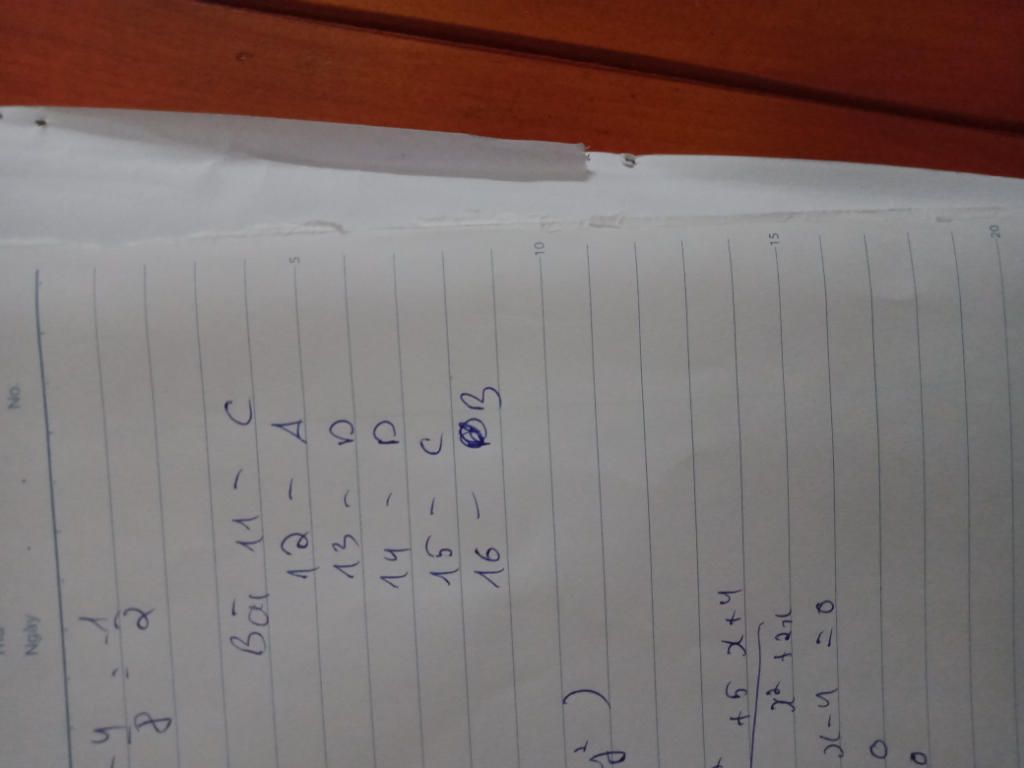 No.
Ngày
4/8 = 1/2
Bài 11 - C
12 - A
5
13 - D
14 - D
15 - C
16 - B
10
y²)
+5x+4
x²+2x
15
x-4 = 0
0
0
20